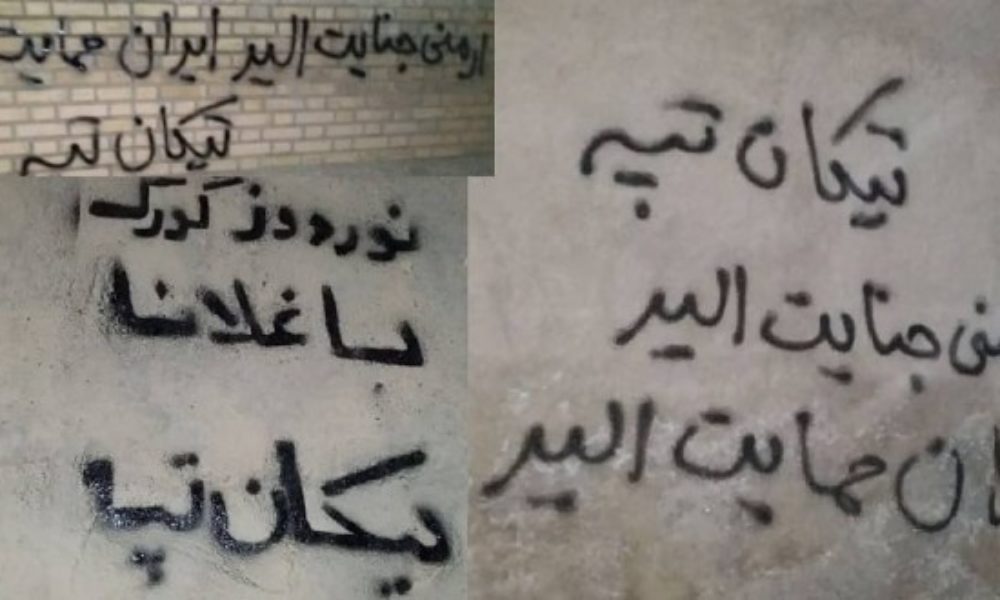 ارمنی جنایت الیر ایران حمایت
تیکان تپه
نوردوز گورک
باغلانا
تیکان تپا
تیکان تپه
نی جنایت الیر
ان حمایت الیر